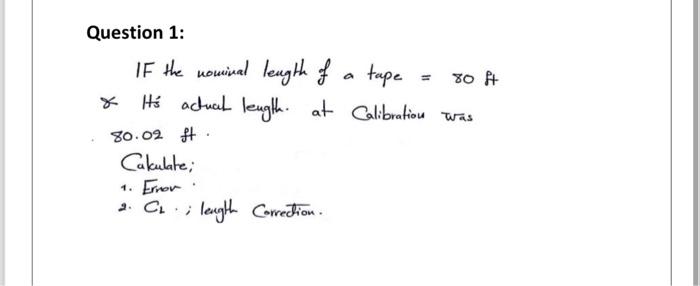 Question 1:
IF the nominal length of a tape = 80 ft
& It's actual length. at Calibration was
80.02 ft.
Calculate;
1. Error
2. CL.; length Correction.